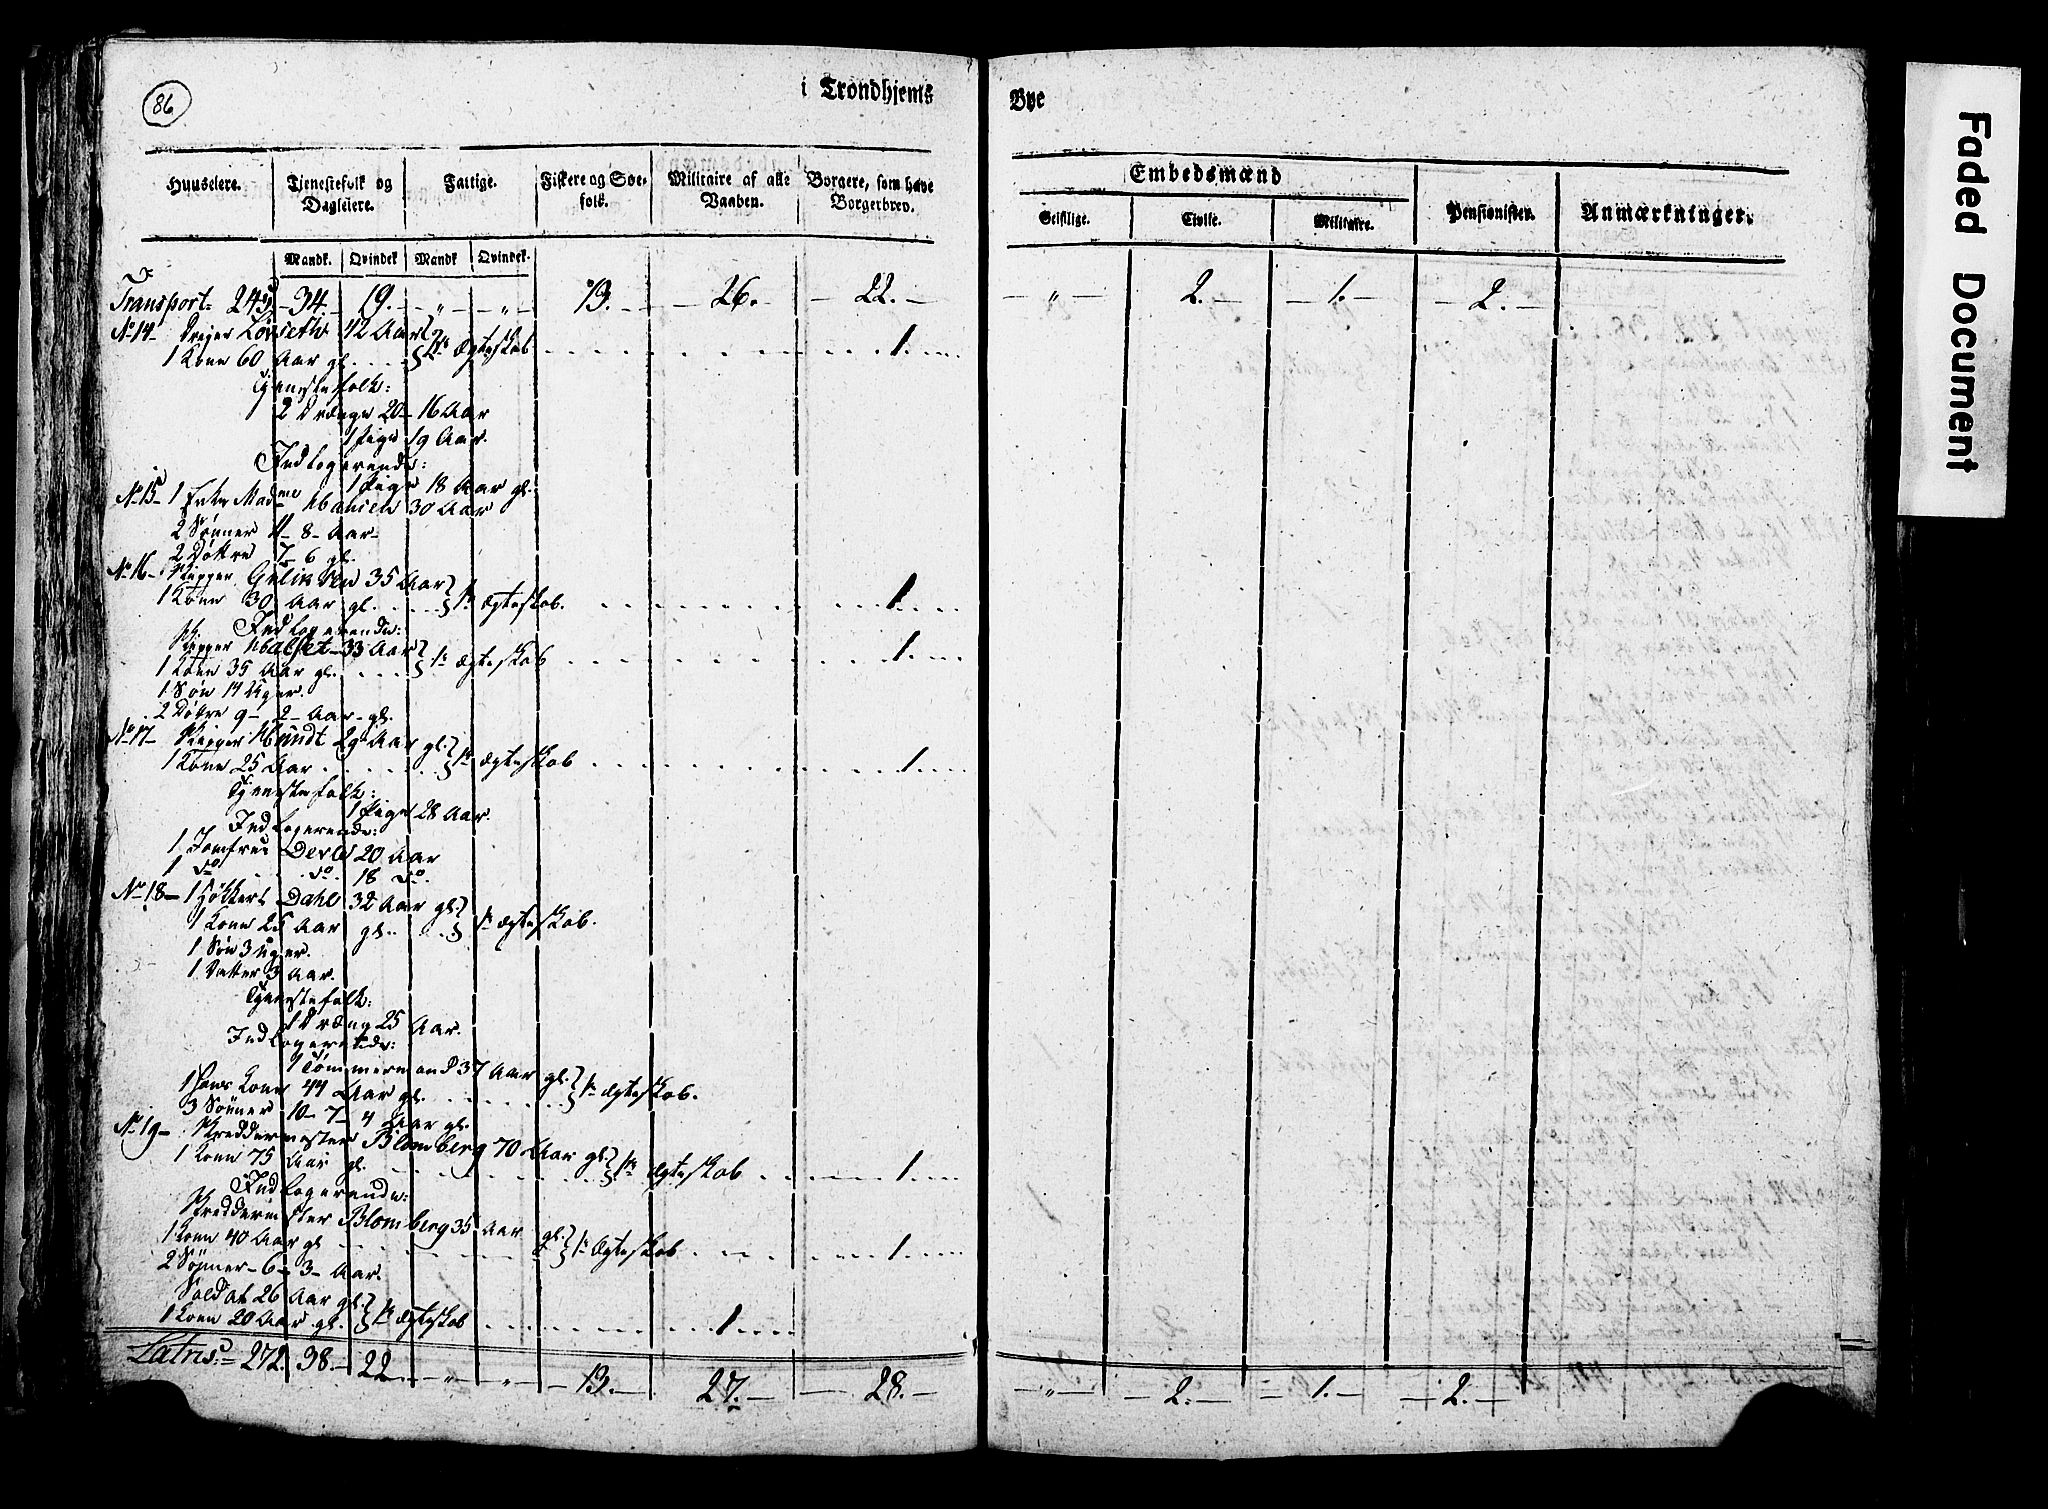 86
i Trondhjems Bye
Huuseiere. Tjenestefolk og Dagleiere. Fattige. Fiskere og Søefolk. Militaire af alle Vaaben. Borgere, som have Borgerbrev. Embedsmænd Pensionister. Anmærkninger.
Geistlige. Civile. Militaire.
Mandk. Qvindek Mandk Qvindek.
Transport 243 34. 19. " " 13. 26. 22. " 2. 1. 2.
No 14 Løvseth 42 Aar
1 Kone 60 Aar gl. 1te Ægteskab 1.
Tjenestefolk:
2 Drænge 20 - 16 Aar
1 Pige 19 Aar.
Indlogerende:
1 Pige 18 Aar gl.
No 15 1 Enke Madme Hansen 30 Aar
2 Sønner 11 - 8 - Aar
2 Døttre 7 - 6 gl.
No 16 Skipper 35 Aar
1 Kone 30 Aar gl. 1te Ægteskab. 1.
Indlogerende:
Skipper Halset 33 Aar
1 Kone 35 Aar gl. 1te Ægteskab 1.
1 Søn 14 Uger.
2 Døttre 9 - 2 - Aar gl.
No 17 Skipper Hundt 29 Aar gl.
1 Kone 25 Aar 1te Ægteskab 1.
Tjenestefolk:
1 Pige 28 Aar.
Indlogerende:
1 Jomfrue Derle 20 Aar
1 do do. 18 do.
No 18 1 Høkker Dahl 32 Aar gl.
1 Kone 25 Aar gl. 1te Ægteskab.
1 Søn 3 Uger.
1 Datter 3 Aar.
Tjenestefolk:
1 Dræng 25 Aar.
Indlogerende:
1 Tømmermand 37 Aar gl.
1 Hans Kone 44 Aar gl. 1te Ægteskab.
3 Sønner 10 - 7 - 4 Aar gl.
No 19 Skreddermester Blomberg 70 Aar gl.
1 Kone 75 Aar gl. 1te Ægteskab 1.
Indlogerende:
Skreddermester Blomberg 35 Aar gl.
1 Kone 40 Aar gl 1te Ægteskab 1.
2 Sønner - 6 - 3 - Aar.
Soldat 26 Aar gl.
1 Kone 20 Aar gl. 1te Ægteskab 1.
Latris 272. 38. 22 " " 13. 27. 28. " 2. 1. 2.
Faded Document